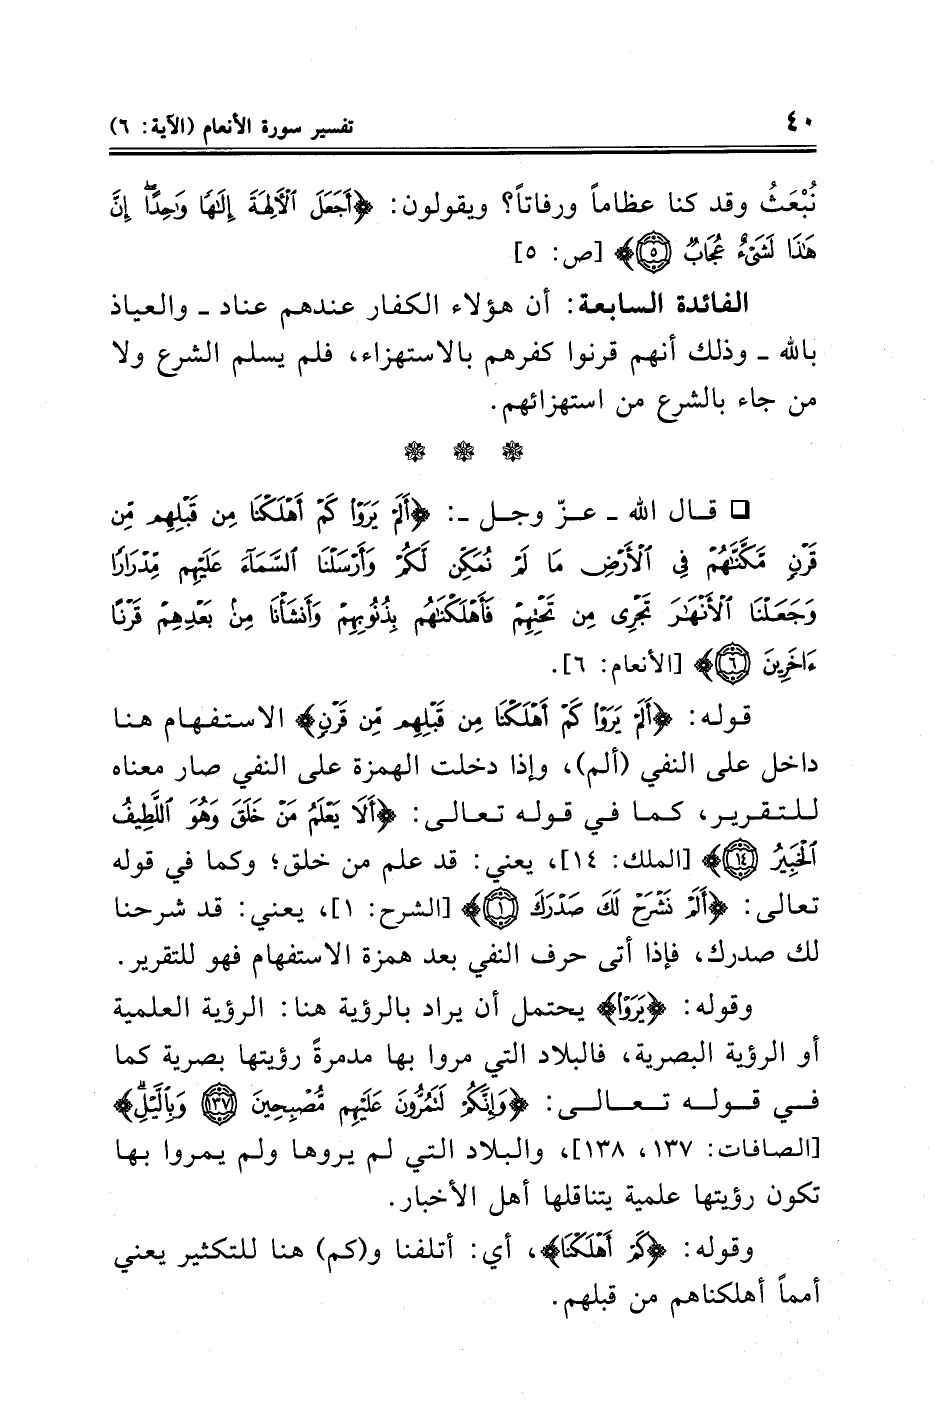 ٤٠ تفسير سورة الأنعام (الآية: ٦)
نُبْعَثُ وقد كنا عظاماً ورفاتاً؟ ويقولون: ﴿أَجَعَلَ ٱلْأٓلِهَةَ إِلَٰهًا وَٰحِدًا ۖ إِنَّ
هَٰذَا لَشَىْءٌ عُجَابٌ ٥﴾ [ص: ٥]
الفائدة السابعة: أن هؤلاء الكفار عندهم عناد ـ والعياذ
بالله ـ وذلك أنهم قرنوا كفرهم بالاستهزاء، فلم يسلم الشرع ولا
من جاء بالشرع من استهزائهم.
❁ ❁ ❁
❑ قـال الله ـ عـزّ وجـل ـ: ﴿أَلَمْ يَرَوْا۟ كَمْ أَهْلَكْنَا مِن قَبْلِهِم مِّن
قَرْنٍ مَّكَّنَّٰهُمْ فِى ٱلْأَرْضِ مَا لَمْ نُمَكِّن لَّكُمْ وَأَرْسَلْنَا ٱلسَّمَآءَ عَلَيْهِم مِّدْرَارًا
وَجَعَلْنَا ٱلْأَنْهَٰرَ تَجْرِى مِن تَحْتِهِمْ فَأَهْلَكْنَٰهُم بِذُنُوبِهِمْ وَأَنشَأْنَا مِنۢ بَعْدِهِمْ قَرْنًا
ءَاخَرِينَ ٦﴾ [الأنعام: ٦].
قوله: ﴿أَلَمْ يَرَوْا۟ كَمْ أَهْلَكْنَا مِن قَبْلِهِم مِّن قَرْنٍ﴾ الاستفهام هنا
داخل على النفي (ألم)، وإذا دخلت الهمزة على النفي صار معناه
للـتـقـريـر، كـمـا في قـولـه تـعـالـى: ﴿أَلَا يَعْلَمُ مَنْ خَلَقَ وَهُوَ ٱللَّطِيفُ
ٱلْخَبِيرُ ١٤﴾ [الملك: ١٤]، يعني: قد علم من خلق؛ وكما في قوله
تعالى: ﴿أَلَمْ نَشْرَحْ لَكَ صَدْرَكَ ١﴾ [الشرح: ١]، يعني: قد شرحنا
لك صدرك، فإذا أتى حرف النفي بعد همزة الاستفهام فهو للتقرير.
وقوله: ﴿يَرَوْا۟﴾ يحتمل أن يراد بالرؤية هنا: الرؤية العلمية
أو الرؤية البصرية، فالبلاد التي مروا بها مدمرةً رؤيتها بصرية كما
فـي قـولـه تـعـالـى: ﴿وَإِنَّكُمْ لَتَمُرُّونَ عَلَيْهِم مُّصْبِحِينَ ١٣٧ وَبِٱلَّيْلِ ۗ﴾
[الصافات: ١٣٧، ١٣٨]، والبلاد التي لم يروها ولم يمروا بها
تكون رؤيتها علمية يتناقلها أهل الأخبار.
وقوله: ﴿كَمْ أَهْلَكْنَا﴾، أي: أتلفنا و(كم) هنا للتكثير يعني
أمماً أهلكناهم من قبلهم.